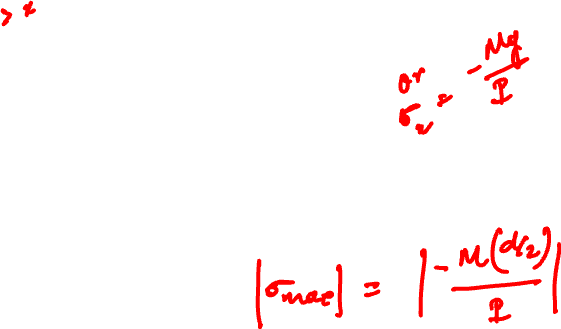 > x
or
σ_x = -My/I
|σ_max| = |-M(d/2)/I|